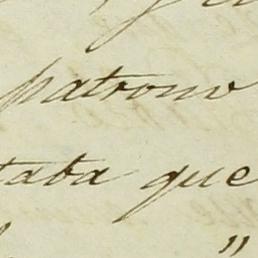 patrono
taba que
"